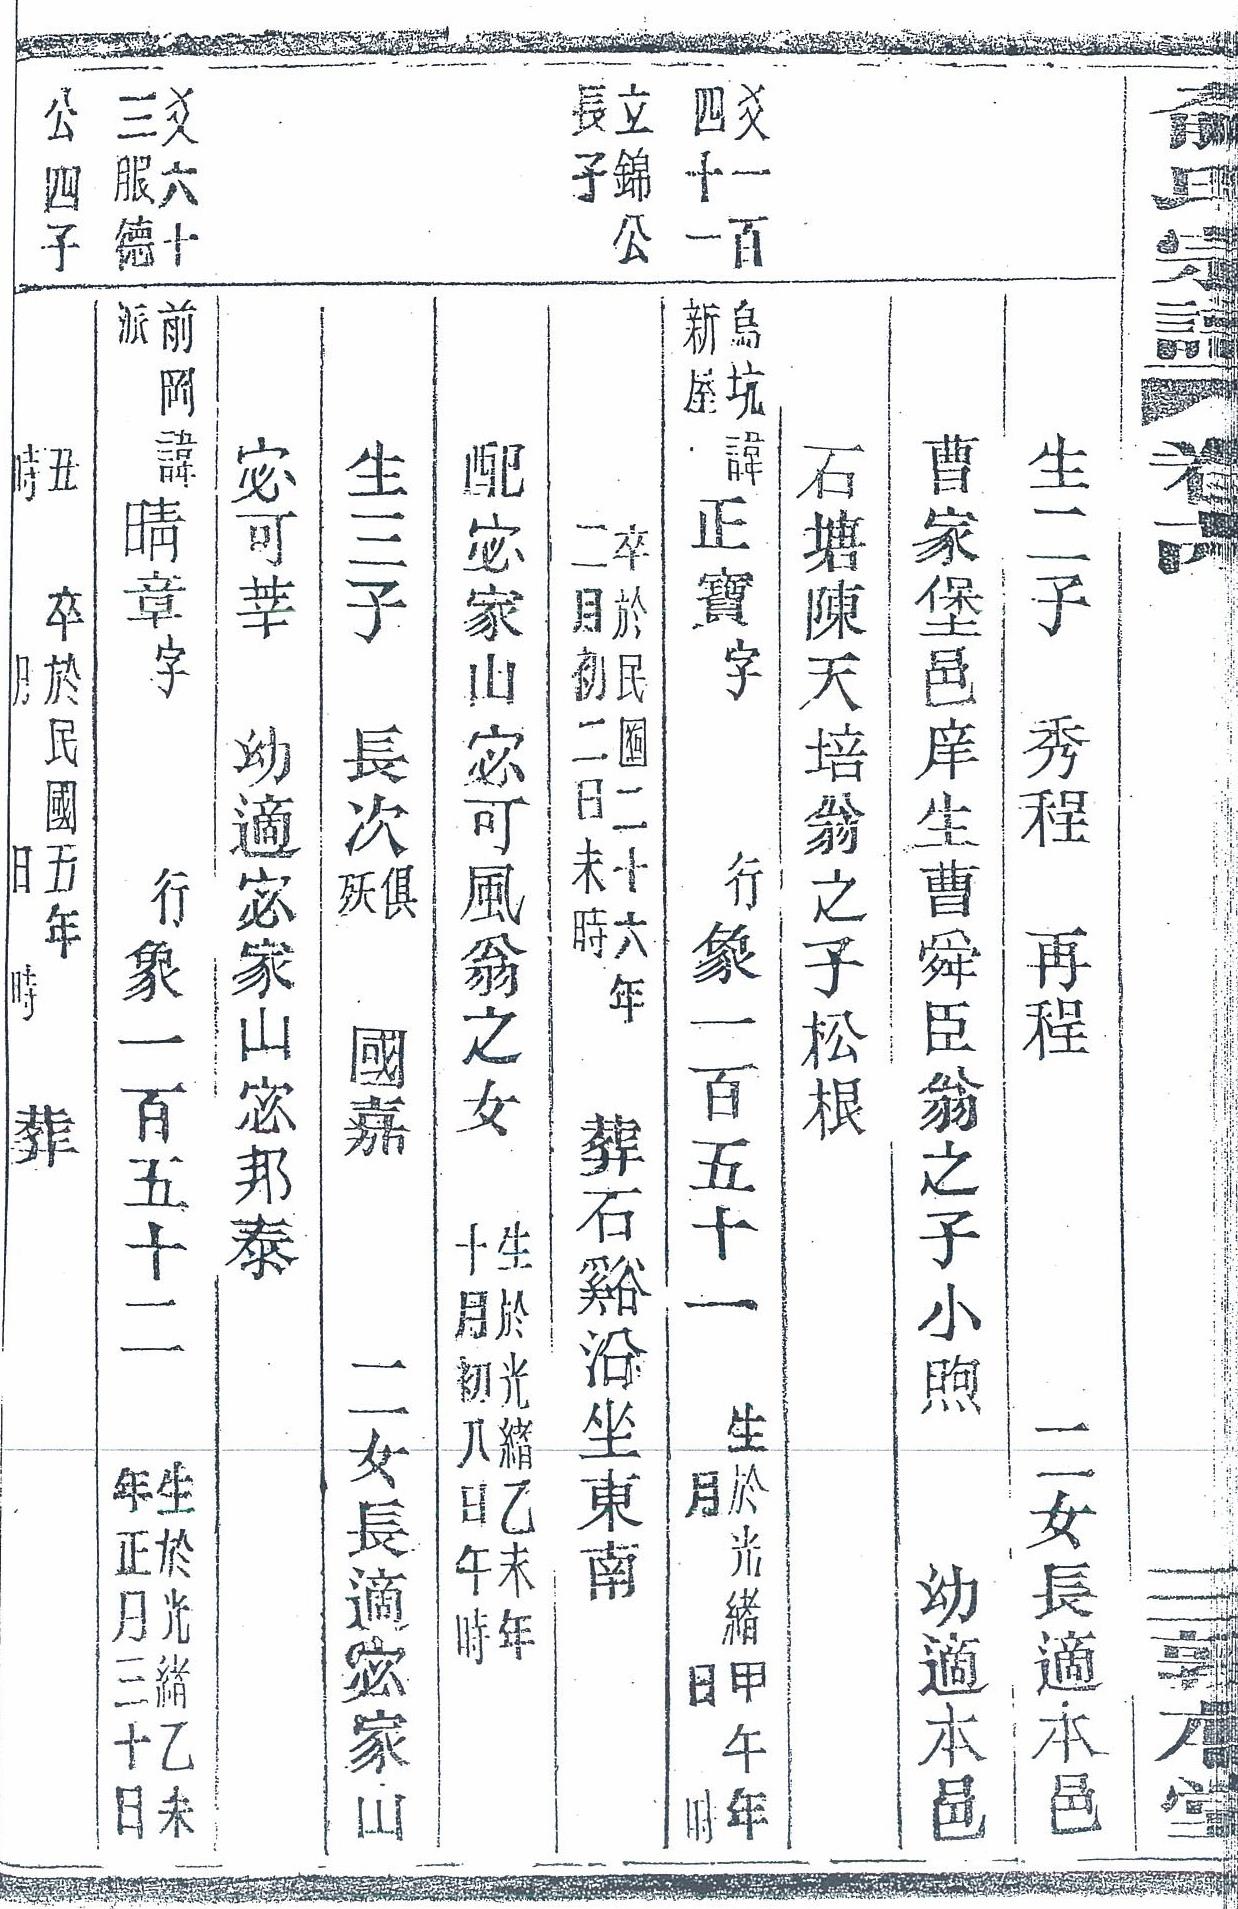 俞氏宗譜 卷六 三 敦本堂
生二子 秀程 再程 二女長適本邑
曹家堡邑庠生曹舜臣翁之子小煦 幼適本邑
石塘陳天培翁之子松根
爻一百
四十一
烏坑
新屋
諱正寶字 行象一百五十一
生於光緒甲午年
月 日 時
立錦公
長子
卒於民國二十六年
二月初二日未時
葬石谿沿坐東南
配宓家山宓可風翁之女
生於光緒乙未年
十月初八日午時
生三子 長次俱殀 國嘉 二女長適宓家山
宓可莘 幼適宓家山宓邦泰
爻六十
三服德
前岡
派
諱晴章字 行象一百五十二
生於光緒乙未
年正月三十日
公四子
丑
時
卒於民國五年
月 日 時
葬